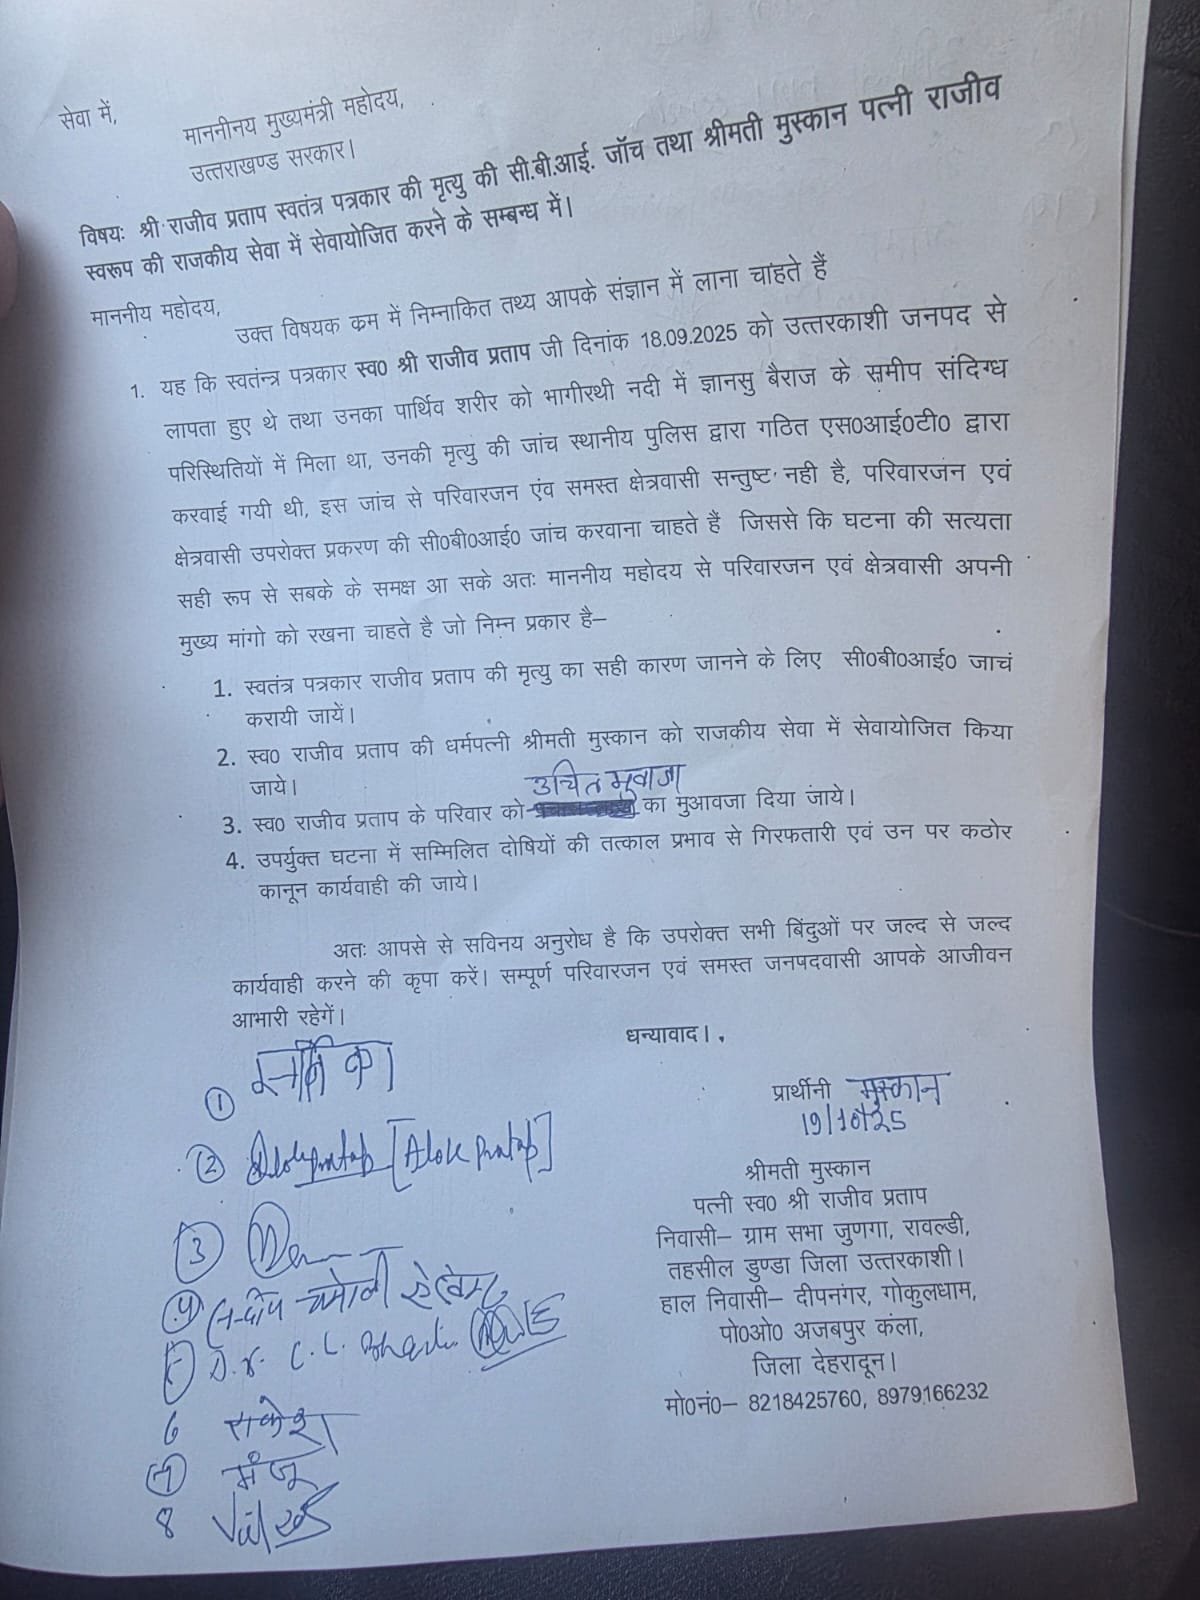 सेवा में,
माननीनय मुख्यमंत्री महोदय,
उत्तराखण्ड सरकार।
विषयः श्री राजीव प्रताप स्वतंत्र पत्रकार की मृत्यु की सी.बी.आई. जॉच तथा श्रीमती मुस्कान पत्नी राजीव
स्वरूप की राजकीय सेवा में सेवायोजित करने के सम्बन्ध में।
माननीय महोदय,
उक्त विषयक क्रम में निम्नाकित तथ्य आपके संज्ञान में लाना चाहते हैं
1. यह कि स्वतंन्त्र पत्रकार स्व0 श्री राजीव प्रताप जी दिनांक 18.09.2025 को उत्तरकाशी जनपद से
लापता हुए थे तथा उनका पार्थिव शरीर को भागीरथी नदी में ज्ञानसु बैराज के समीप संदिग्ध
परिस्थितियों में मिला था, उनकी मृत्यु की जांच स्थानीय पुलिस द्वारा गठित एस0आई0टी0 द्वारा
करवाई गयी थी, इस जांच से परिवारजन एंव समस्त क्षेत्रवासी सन्तुष्ट नही है, परिवारजन एवं
क्षेत्रवासी उपरोक्त प्रकरण की सी0बी0आई0 जांच करवाना चाहते हैं जिससे कि घटना की सत्यता
सही रूप से सबके के समक्ष आ सके अतः माननीय महोदय से परिवारजन एवं क्षेत्रवासी अपनी
मुख्य मांगो को रखना चाहते है जो निम्न प्रकार है–
1. स्वतंत्र पत्रकार राजीव प्रताप की मृत्यु का सही कारण जानने के लिए सी0बी0आई0 जाचं
करायी जायें।
2. स्व0 राजीव प्रताप की धर्मपत्नी श्रीमती मुस्कान को राजकीय सेवा में सेवायोजित किया
जाये।
उचित मुवाजा
3. स्व0 राजीव प्रताप के परिवार को का मुआवजा दिया जाये।
4. उपर्युक्त घटना में सम्मिलित दोषियों की तत्काल प्रभाव से गिरफतारी एवं उन पर कठोर
कानून कार्यवाही की जाये।
अतः आपसे से सविनय अनुरोध है कि उपरोक्त सभी बिंदुओं पर जल्द से जल्द
कार्यवाही करने की कृपा करें। सम्पूर्ण परिवारजन एवं समस्त जनपदवासी आपके आजीवन
आभारी रहेगें।
धन्यावाद।
प्रार्थीनी मुस्कान
19/10/25
श्रीमती मुस्कान
पत्नी स्व0 श्री राजीव प्रताप
निवासी– ग्राम सभा जुणगा, रावल्डी,
तहसील डुण्डा जिला उत्तरकाशी।
हाल निवासी– दीपनगर, गोकुलधाम,
पो0ओ0 अजबपुर कंला,
जिला देहरादून।
मो0नं0– 8218425760, 8979166232
1
2 [Alok Pratap]
3
4 चमोली
5 Dr. C.L.
6 राकेश
7 मंजू
8